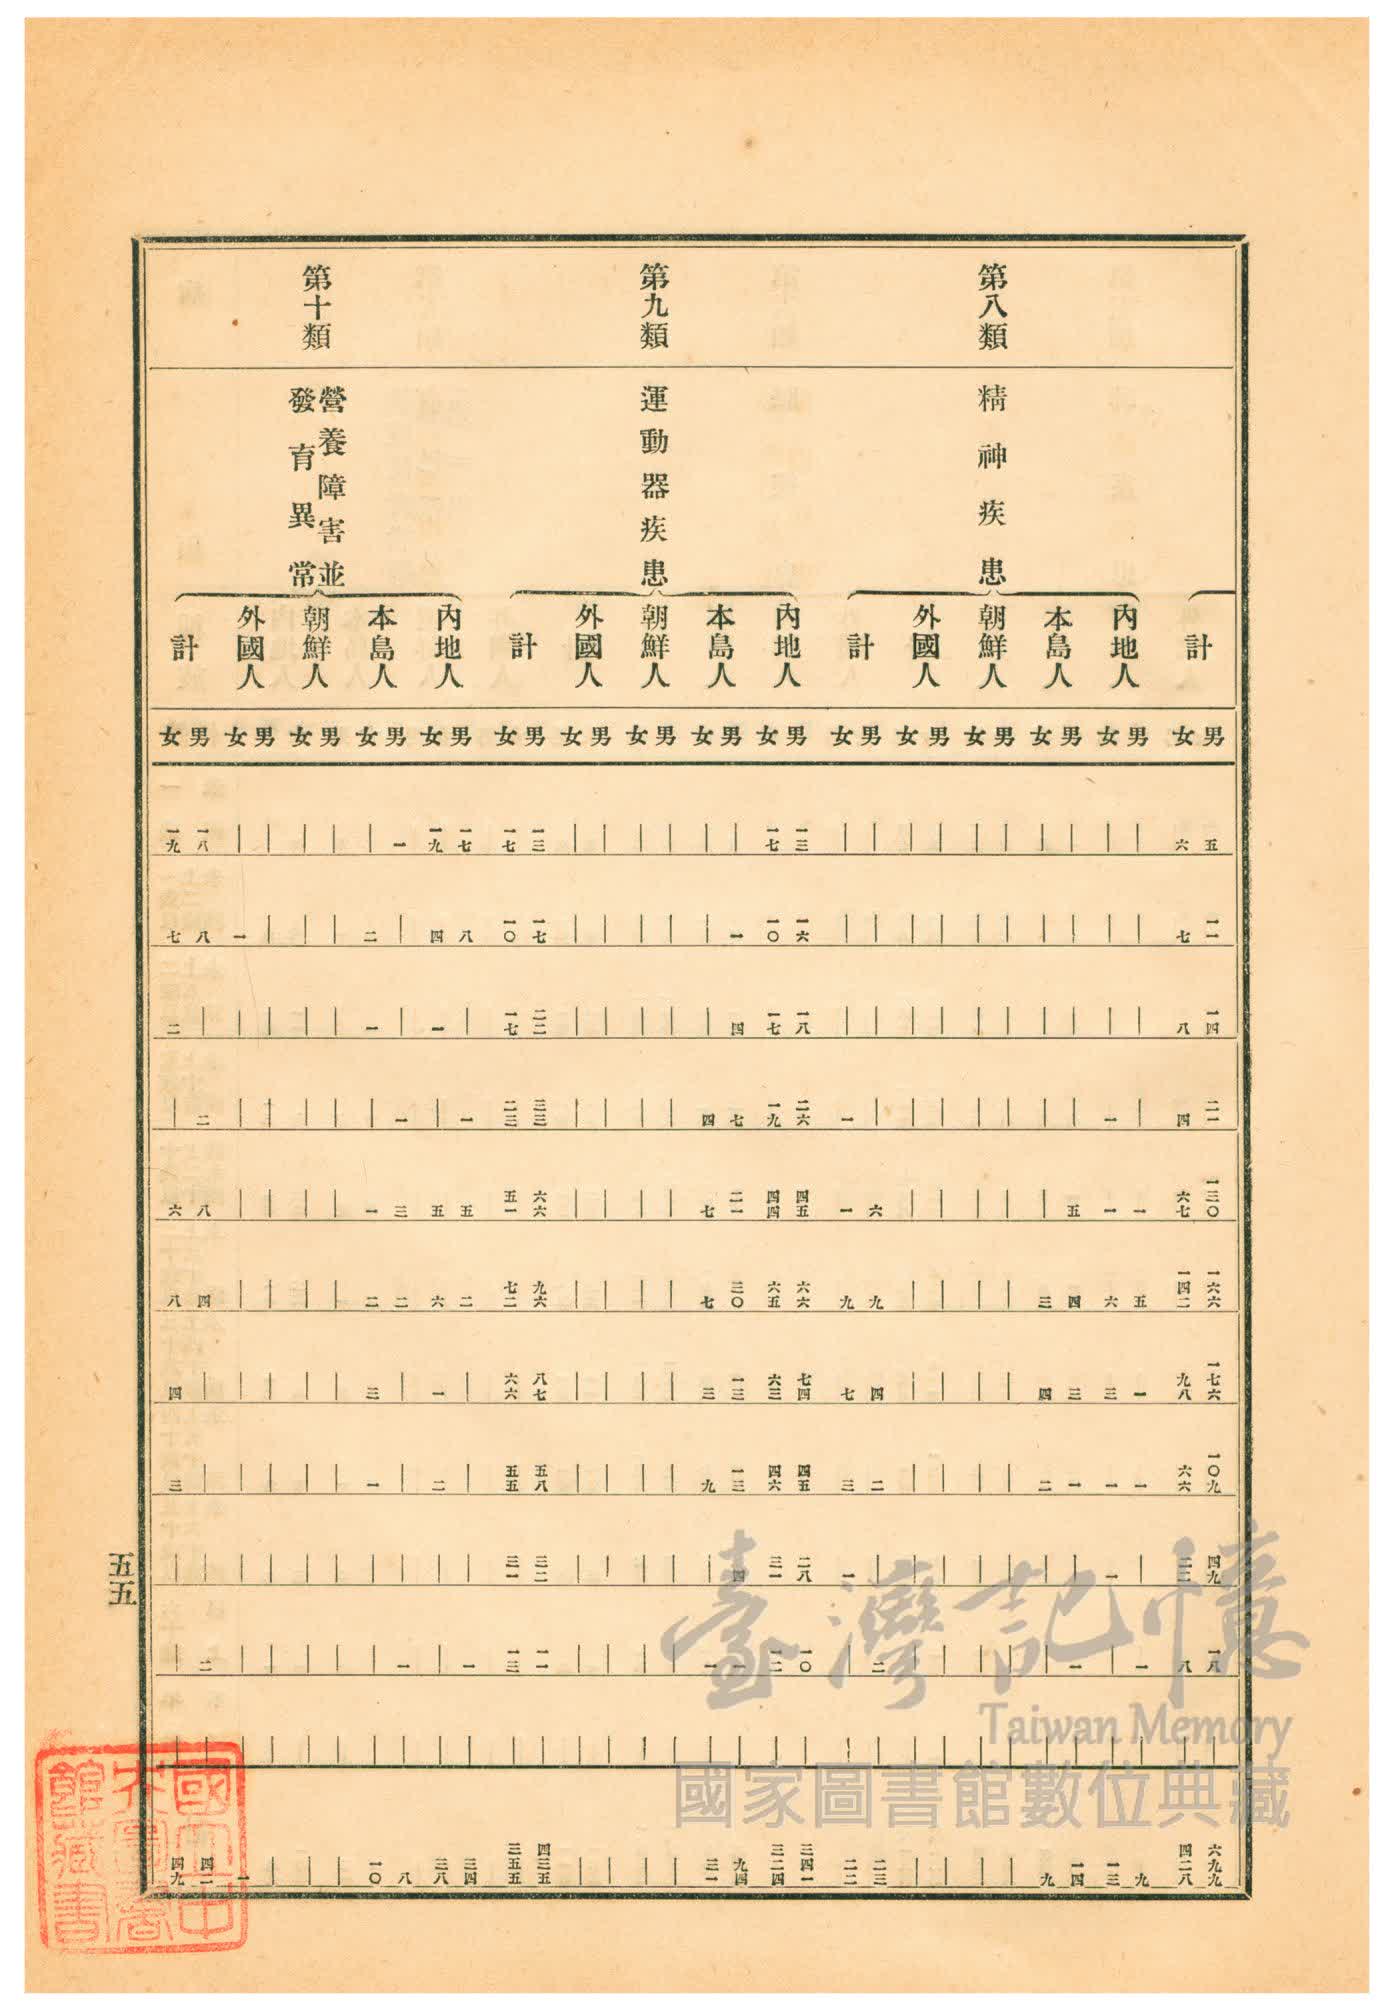 第八類 第九類 第十類
精神疾患 運動器疾患 營養障害並發育異常
計 內地人 本島人 朝鮮人 外國人 計 內地人 本島人 朝鮮人 外國人 計 內地人 本島人 朝鮮人 外國人 計
男 女 男 女 男 女 男 女 男 女 男 女 男 女 男 女 男 女 男 女 男 女 男 女 男 女 男 女 男 女 男 女
五 六 ｜ ｜ ｜ ｜ ｜ ｜ ｜ ｜ ｜ ｜ 一三 一七 ｜ ｜ ｜ ｜ ｜ ｜ 一三 一七 一七 一九 一 ｜ ｜ ｜ ｜ ｜ 一八 一九
一一 七 ｜ ｜ ｜ ｜ ｜ ｜ ｜ ｜ ｜ ｜ 一六 一〇 一 ｜ ｜ ｜ ｜ ｜ 一七 一〇 八 四 ｜ 二 ｜ ｜ ｜ 一 八 七
一四 八 ｜ ｜ ｜ ｜ ｜ ｜ ｜ ｜ ｜ ｜ 一八 一七 四 ｜ ｜ ｜ ｜ ｜ 二二 一七 ｜ 一 ｜ 一 ｜ ｜ ｜ ｜ ｜ 二
二一 四 ｜ 一 ｜ ｜ ｜ ｜ ｜ ｜ ｜ 一 二六 一九 七 四 ｜ ｜ ｜ ｜ 三三 二三 一 ｜ 一 ｜ ｜ ｜ ｜ ｜ 二 ｜
一三〇 六七 一 一 五 ｜ ｜ ｜ ｜ ｜ 六 一 四五 四四 二一 七 ｜ ｜ ｜ ｜ 六六 五一 五 五 三 一 ｜ ｜ ｜ ｜ 八 六
一六六 一四二 五 六 四 三 ｜ ｜ ｜ ｜ 九 九 六六 六五 三〇 七 ｜ ｜ ｜ ｜ 九六 七二 二 六 二 二 ｜ ｜ ｜ ｜ 四 八
一七六 九八 一 三 三 四 ｜ ｜ ｜ ｜ 四 七 七四 六三 一三 三 ｜ ｜ ｜ ｜ 八七 六六 ｜ 一 ｜ 三 ｜ ｜ ｜ ｜ ｜ 四
一〇九 六六 一 一 一 二 ｜ ｜ ｜ ｜ 二 三 四五 四六 一三 九 ｜ ｜ ｜ ｜ 五八 五五 ｜ 二 ｜ 一 ｜ ｜ ｜ ｜ ｜ 三
四九 二二 ｜ 一 ｜ ｜ ｜ ｜ ｜ ｜ ｜ 一 二八 三一 四 ｜ ｜ ｜ ｜ ｜ 三二 三一 ｜ ｜ ｜ ｜ ｜ ｜ ｜ ｜ ｜ ｜
一八 八 一 ｜ 一 ｜ ｜ ｜ ｜ ｜ 二 ｜ 一〇 一二 一 一 ｜ ｜ ｜ ｜ 一一 一三 一 ｜ 一 ｜ ｜ ｜ ｜ ｜ 二 ｜
｜ ｜ ｜ ｜ ｜ ｜ ｜ ｜ ｜ ｜ ｜ ｜ ｜ ｜ ｜ ｜ ｜ ｜ ｜ ｜ ｜ ｜ ｜ ｜ ｜ ｜ ｜ ｜ ｜ ｜ ｜ ｜
六九九 四二八 九 一三 一四 九 ｜ ｜ ｜ ｜ 二三 二二 三四一 三二四 九四 三一 ｜ ｜ ｜ ｜ 四三五 三五五 三四 三八 八 一〇 ｜ ｜ ｜ 一 四二 四九
五五
臺灣記憶
Taiwan Memory
國家圖書館數位典藏
國立中央圖書館藏書